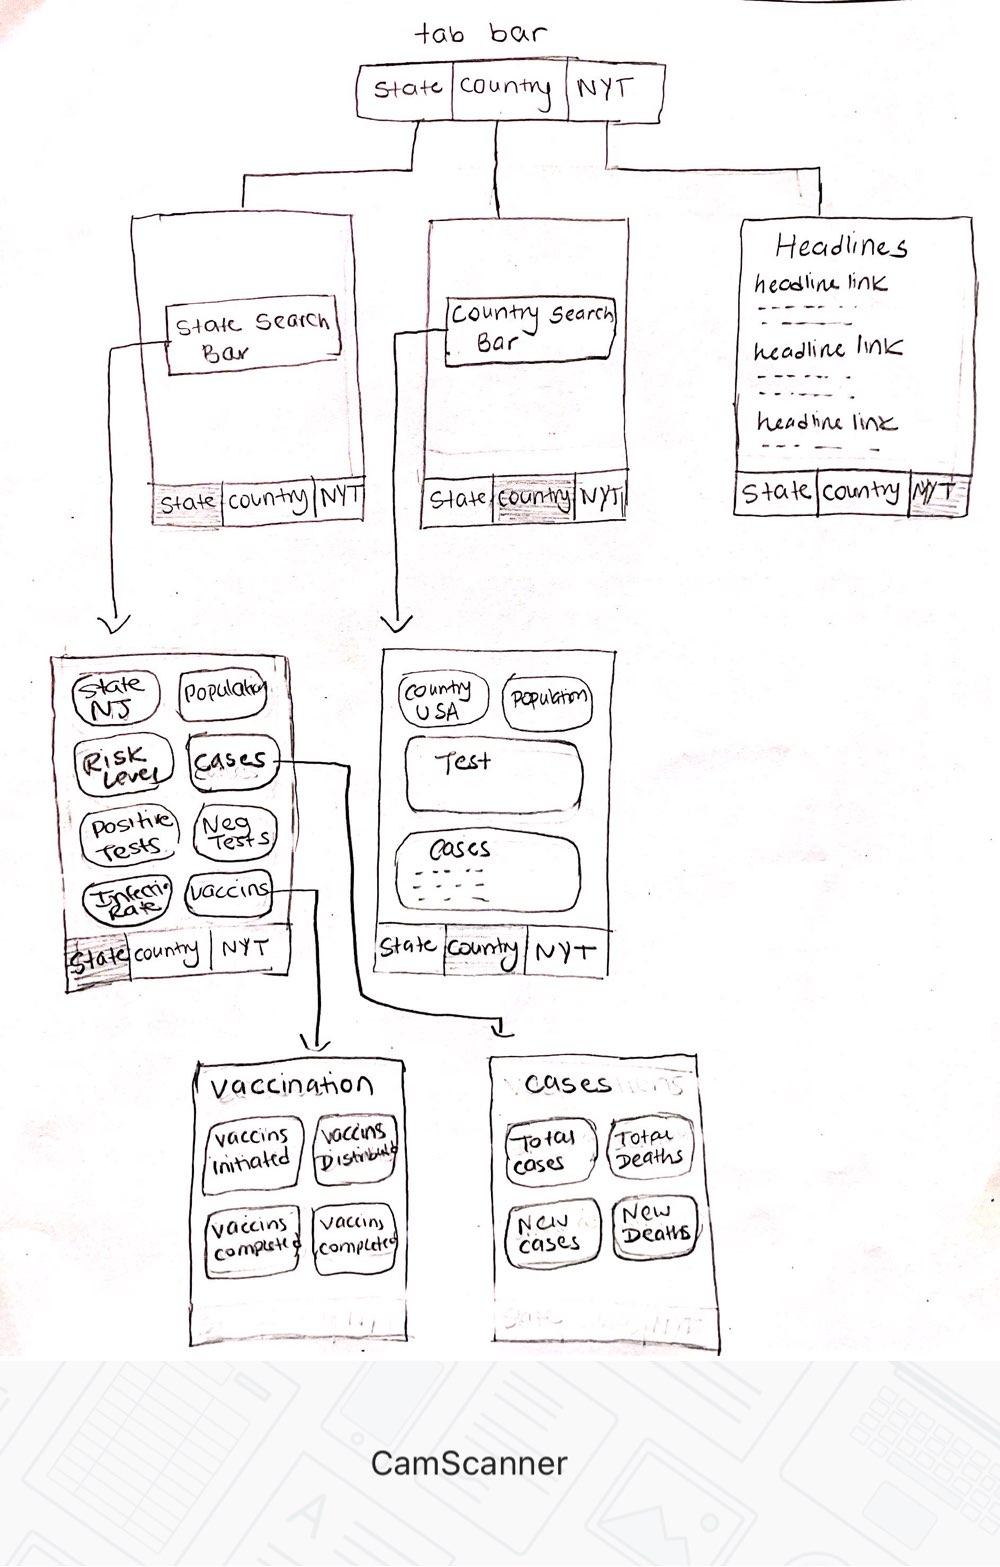 tab bar
State
Country
NYT
State Search
Bar
State
Country
NYT
Country Search
Bar
State
Country
NYT
Headlines
headline link
headline link
headline link
State
Country
NYT
State
NJ
Population
Risk
Level
Cases
Positive
Tests
Neg
Tests
Rate
Vaccins
State
Country
NYT
Country
USA
Population
Test
Cases
State
Country
NYT
Vaccination
Vaccins
initiated
Vaccins
Vaccins
completed
Vaccins
completed
Cases
Total
Cases
Total
Deaths
New
Cases
New
Deaths
CamScanner